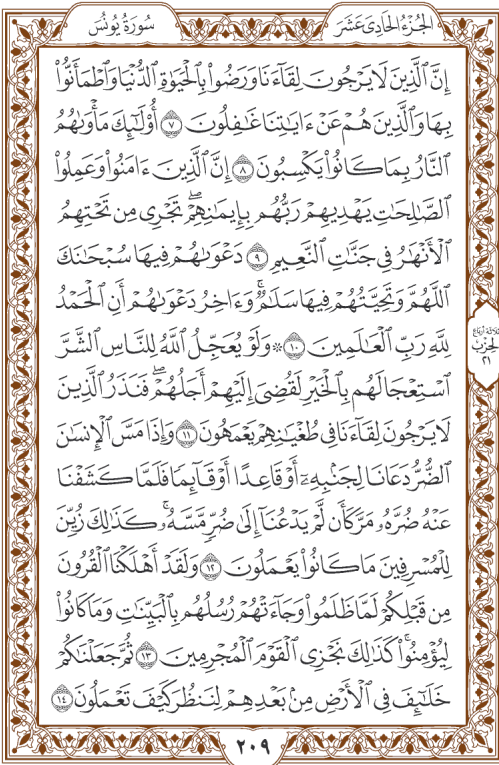 الجزء الحادي عشر
سورة يونس
إِنَّ ٱلَّذِينَ لَا يَرْجُونَ لِقَآءَنَا وَرَضُوا۟ بِٱلْحَيَوٰةِ ٱلدُّنْيَا وَٱطْمَأَنُّوا۟
بِهَا وَٱلَّذِينَ هُمْ عَنْ ءَايَـٰتِنَا غَـٰفِلُونَ ٧ أُو۟لَـٰٓئِكَ مَأْوَىٰهُمُ
ٱلنَّارُ بِمَا كَانُوا۟ يَكْسِبُونَ ٨ إِنَّ ٱلَّذِينَ ءَامَنُوا۟ وَعَمِلُوا۟
ٱلصَّـٰلِحَـٰتِ يَهْدِيهِمْ رَبُّهُم بِإِيمَـٰنِهِمْ ۖ تَجْرِى مِن تَحْتِهِمُ
ٱلْأَنْهَـٰرُ فِى جَنَّـٰتِ ٱلنَّعِيمِ ٩ دَعْوَىٰهُمْ فِيهَا سُبْحَـٰنَكَ
ٱللَّهُمَّ وَتَحِيَّتُهُمْ فِيهَا سَلَـٰمٌ ۚ وَءَاخِرُ دَعْوَىٰهُمْ أَنِ ٱلْحَمْدُ
لِلَّهِ رَبِّ ٱلْعَـٰلَمِينَ ١٠ ۞ وَلَوْ يُعَجِّلُ ٱللَّهُ لِلنَّاسِ ٱلشَّرَّ
ٱسْتِعْجَالَهُم بِٱلْخَيْرِ لَقُضِىَ إِلَيْهِمْ أَجَلُهُمْ ۖ فَنَذَرُ ٱلَّذِينَ
لَا يَرْجُونَ لِقَآءَنَا فِى طُغْيَـٰنِهِمْ يَعْمَهُونَ ١١ وَإِذَا مَسَّ ٱلْإِنسَـٰنَ
ٱلضُّرُّ دَعَانَا لِجَنۢبِهِۦٓ أَوْ قَاعِدًا أَوْ قَآئِمًا فَلَمَّا كَشَفْنَا
عَنْهُ ضُرَّهُۥ مَرَّ كَأَن لَّمْ يَدْعُنَآ إِلَىٰ ضُرٍّ مَّسَّهُۥ ۚ كَذَٰلِكَ زُيِّنَ
لِلْمُسْرِفِينَ مَا كَانُوا۟ يَعْمَلُونَ ١٢ وَلَقَدْ أَهْلَكْنَا ٱلْقُرُونَ
مِن قَبْلِكُمْ لَمَّا ظَلَمُوا۟ وَجَآءَتْهُمْ رُسُلُهُم بِٱلْبَيِّنَـٰتِ وَمَا كَانُوا۟
لِيُؤْمِنُوا۟ ۚ كَذَٰلِكَ نَجْزِى ٱلْقَوْمَ ٱلْمُجْرِمِينَ ١٣ ثُمَّ جَعَلْنَـٰكُمْ
خَلَـٰٓئِفَ فِى ٱلْأَرْضِ مِنۢ بَعْدِهِمْ لِنَنظُرَ كَيْفَ تَعْمَلُونَ ١٤
ثلاثة أرباع
الحزب
٢١
٢٠٩